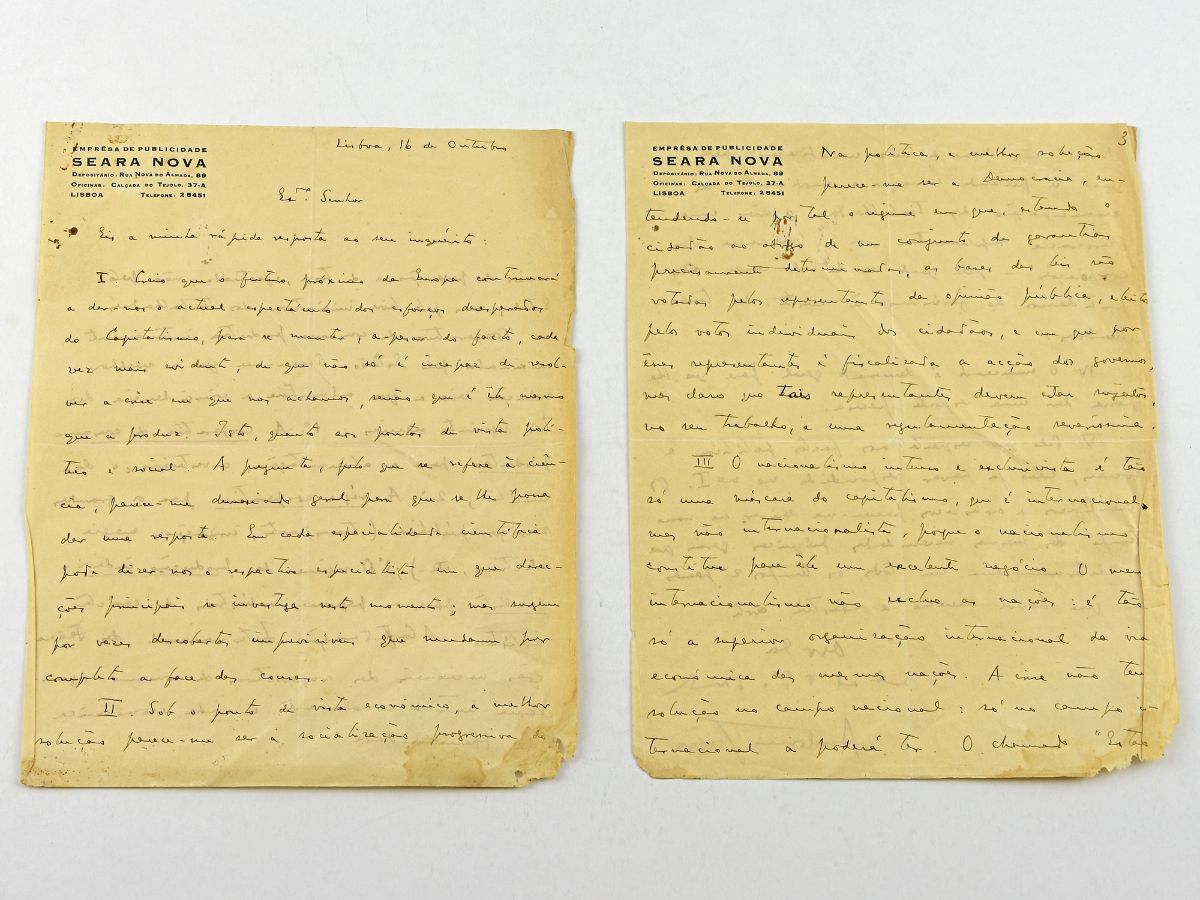 EMPRÊSA DE PUBLICIDADE
SEARA NOVA
DEPOSITÁRIO: RUA NOVA DO ALMADA, 89
OFICINAS: CALÇADA DO TEJOLO, 37-A
LISBOA TELEFONE: 28451
Lisboa, 16 de Outubro
Exmº. Senhor
Eis a minha rápida resposta ao seu inquérito:
I. Creio que o futuro próximo da Europa continuará
a dar-nos o actual espectáculo dos esforços desesperados
do Capitalismo, para se manter, a-pesar do facto, cada
vez mais evidente, de que não só é incapaz de resol-
ver a crise em que nos achamos, senão que é êle mesmo
que a produz. Isto, quanto aos pontos de vista polí-
tico e social. A pregunta, pelo que se refere à ciên-
cia, parece-me demasiado geral para que se lhe possa
dar uma resposta. Em cada especialidade científica
poda dizer-nos o respectivo especialista em que direc-
ções principais se investiga neste momento; mas surgem
por vezes descobertas imprevisíveis que mudam por
completo a face das cousas.
II. Sob o ponto de vista económico, a melhor
solução parece-me ser a socialização progressiva do
3
EMPRÊSA DE PUBLICIDADE
SEARA NOVA
DEPOSITÁRIO: RUA NOVA DO ALMADA, 89
OFICINAS: CALÇADA DO TEJOLO, 37-A
LISBOA TELEFONE: 28451
Na política, a melhor solução
parece-me ser a Democracia, en-
tendendo-se por tal o regime em que, estando o
cidadão ao abrigo de um conjunto de garantias
precisamente determinadas, as bases das leis são
votadas pelos representantes da opinião pública, eleitos
pelos votos individuais dos cidadãos, e em que por
êsses representantes é fiscalizada a acção dos governos,
mas claro que tais representantes devem estar sujeitos,
no seu trabalho, a uma regulamentação severíssima.
III O nacionalismo intenso e exclusivista é tão
só uma máscara do capitalismo, que é internacional
mas não internacionalista, porque o nacionalismo
constitue para êle um excelente negócio. O meu
internacionalismo não exclue as nações: é tão
só a superior organização internacional da vida
económica das mesmas nações. A crise não tem
solução no campo nacional: só no campo in-
ternacional a poderá ter. O chamado "Estado